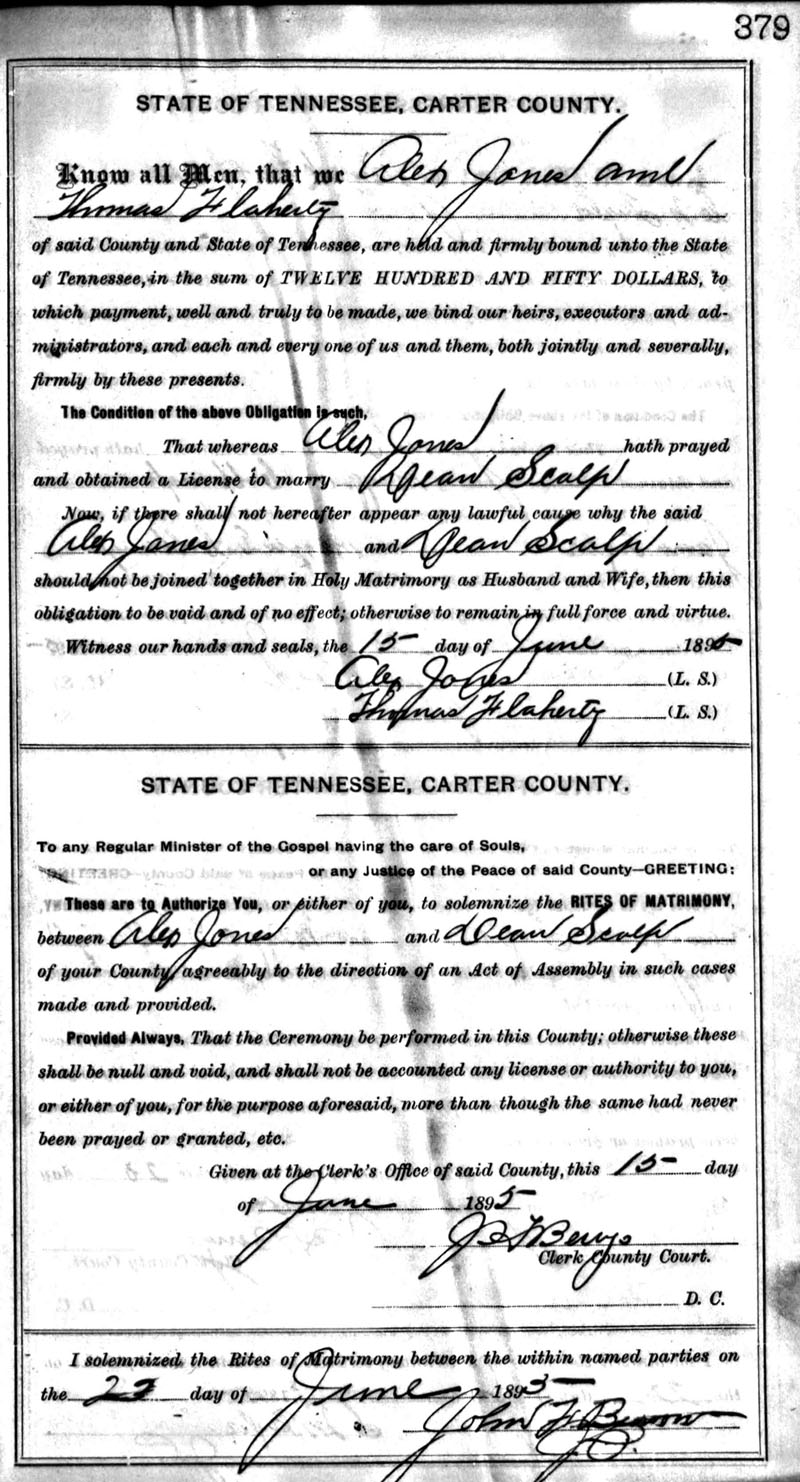 379
STATE OF TENNESSEE, CARTER COUNTY.
Know all Men, that we Alex Jones and
Thomas Flaherty
of said County and State of Tennessee, are held and firmly bound unto the State
of Tennessee, in the sum of TWELVE HUNDRED AND FIFTY DOLLARS, to
which payment, well and truly to be made, we bind our heirs, executors and ad-
ministrators, and each and every one of us and them, both jointly and severally,
firmly by these presents.
The Condition of the above Obligation is such,
That whereas Alex Jones hath prayed
and obtained a License to marry Dean Scalf
Now, if there shall not hereafter appear any lawful cause why the said
Alex Jones and Dean Scalf
should not be joined together in Holy Matrimory as Husband and Wife, then this
obligation to be void and of no effect; otherwise to remain in full force and virtue.
Witness our hands and seals, the 15 day of June 1895
Alex Jones (L. S.)
Thomas Flaherty (L. S.)
STATE OF TENNESSEE, CARTER COUNTY.
To any Regular Minister of the Gospel having the care of Souls,
or any Justice of the Peace of said County—GREETING:
These are to Authorize You, or either of you, to solemnize the RITES OF MATRIMONY,
between Alex Jones and Dean Scalf
of your County agreeably to the direction of an Act of Assembly in such cases
made and provided.
Provided Always, That the Ceremony be performed in this County; otherwise these
shall be null and void, and shall not be accounted any license or authority to you,
or either of you, for the purpose aforesaid, more than though the same had never
been prayed or granted, etc.
Given at the Clerk's Office of said County, this 15 day
of June 1895
Clerk County Court.
D. C.
I solemnized the Rites of Matrimony between the within named parties on
the day of June 1895
John F.
J. P.